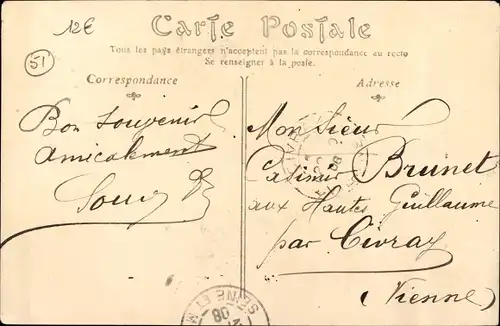 12€
Carte Postale
51
Tous les pays étrangers n'acceptent pas la correspondance au recto
Se renseigner à la poste.
Correspondance
Bon Souvenir
amicalement
Adresse
Monsieur
Casimir Brunet
aux Hautes Guillaume
par Civray
(Vienne)
SEINE ET M
08